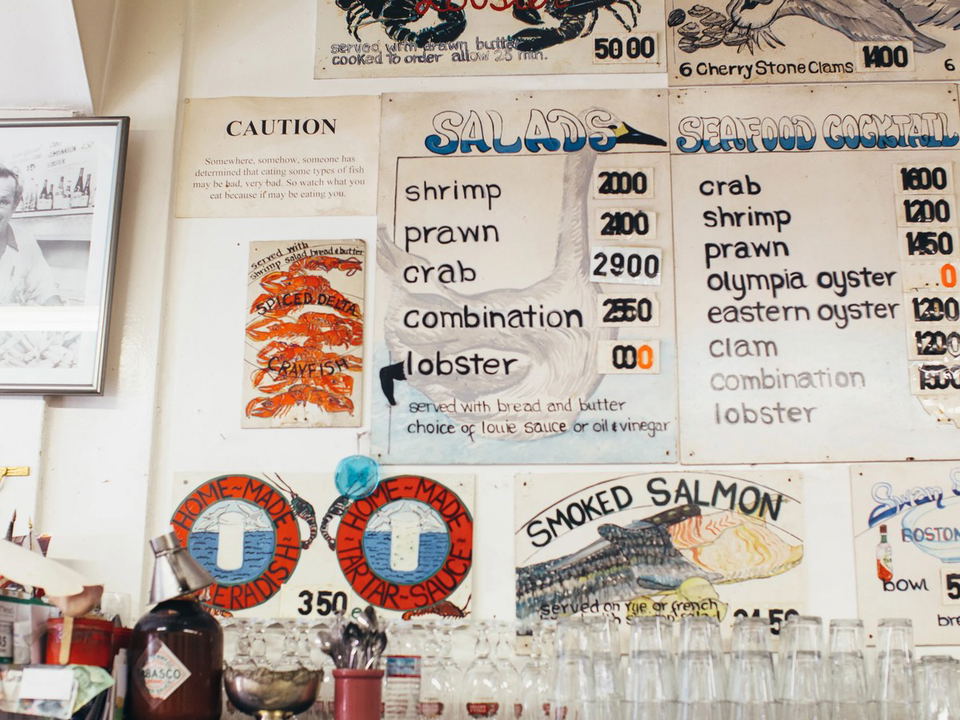 Lobster
served with drawn butter
cooked to order allow 25 min.
5000
6 Cherry Stone Clams
1400
6
CAUTION
Somewhere, somehow, someone has
determined that eating some types of fish
may be bad, very bad. So watch what you
eat because if may be eating you.
served with
shrimp salad bread & butter
SPICED DELTA
CRAYFISH
SALADS
shrimp 2000
prawn 2100
crab 2900
combination
lobster 000
served with bread and butter
choice of louie sauce or oil & vinegar
SEAFOOD COCKTAIL
crab 1600
shrimp 1200
prawn 1450
olympia oyster 0
eastern oyster 1200
clam 1200
combination 1500
lobster
HOME-MADE
HOME-MADE
TARTAR-SAUCE
350
SMOKED SALMON
served on rye or french
Swan
BOSTON
bowl 5